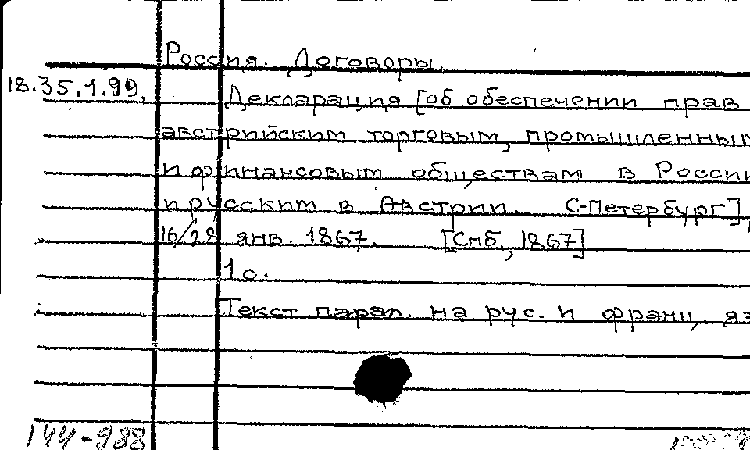 Россия. Договоры.
18.35.1.99. Декларация [об обеспечении прав
австрийским торговым, промышленным
и финансовым обществам в России
и русским в Австрии. С-Петербург],
16/28 янв. 1867. [Спб, 1867]
1 с.
Текст парал. на рус. и франц. яз
144-988